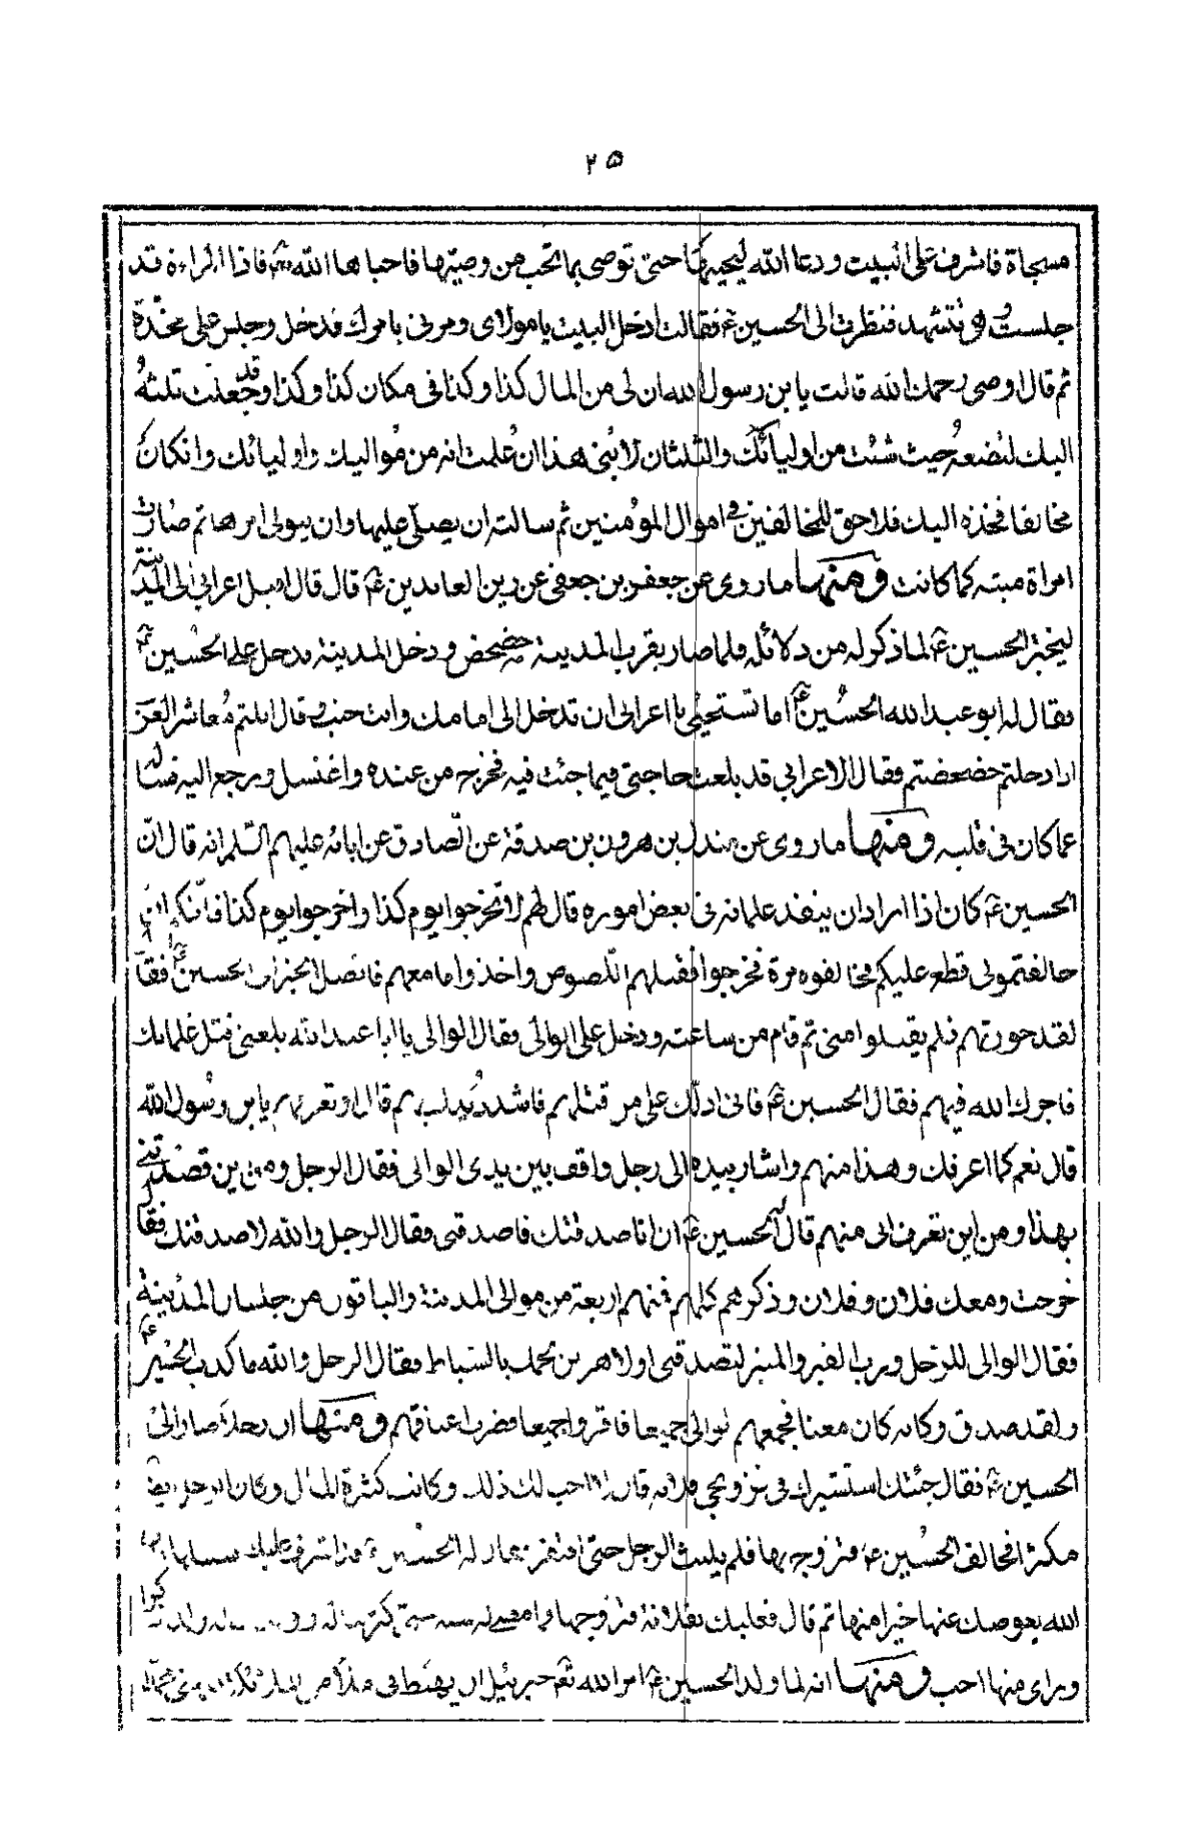 ٢٥
مسجاة فاشرف على البيت ودعا الله ليحييها حتى توصى بما تحب من وصيتها فاحياها الله تع فاذا المراءة قد
جلست وهى تتشهد فنظرت الى الحسين ع فقالت ادخل البيت يا مولاى ومرنى بامرك فدخل وجلس على مخدة
ثم قال اوصى رحمك الله قالت يا بن رسول الله ان لى من المال كذا وكذا فى مكان كذا وكذا وقد جعلت ثلثه
اليك لتضعه حيث شئت من اوليائك والثلثان لابنى هذا ان علمت انه من مواليك واوليائك وانكان
مخالفا فخذه اليك فلا حق للمخالفين فى اموال المؤمنين ثم سالته ان يصلى عليها وان يتولى امرها ثم صارت
امراة ميتة كما كانت ومنها ما روى عن جعفر بن جعفى عن زين العابدين ع قال قال اقبل اعرابي الى المدينة
ليختبر الحسين ع لما ذكر له من دلائله فلما صار بقرب المدينة خضخض ودخل المدينة فدخل على الحسين ع
فقال له ابو عبد الله الحسين ع اما تستحيى يا اعرابى ان تدخل الى امامك وانت جنب وقال انتم معاشر العرب
اذا دخلتم خضخضتم فقال الاعرابي قد بلغت حاجتى فيما جئت فيه فخرج من عنده واغتسل ورجع اليه فسأله
عما كان فى قلبه ومنها ما روى عن مندل بن هرون بن صدقة عن الصادق عن ابائه عليهم السلم انه قال ان
الحسين ع كان اذا اراد ان ينفذ غلمانه فى بعض اموره قال لهم لا تخرجوا يوم كذا واخرجوا يوم كذا فانكم ان
خالفتمونى قطع عليكم فخالفوه مرة فخرجوا فقتلهم اللصوص واخذوا ما معهم فاتصل الخبر الى الحسين ع فقال
لقد حذرتهم فلم يقبلوا منى ثم قام من ساعته ودخل على الوالى وقال الوالى يا ابا عبد الله بلغنى قتل غلمانك
فاجرك الله فيهم فقال الحسين ع فانى ادلك على من قتلهم فاشدد يدك بهم قال او تعرفهم يا بن رسول الله
قال نعم كما اعرفك وهذا منهم واشار بيده الى رجل واقف بين يدى الوالى فقال الرجل ومن اين قصدتنى
بهذا ومن اين تعرف انى منهم قال له الحسين ع ان انا صدقتك فاصدقنى فقال الرجل والله لاصدقنك فقال
خرجت ومعك فلان وفلان وذكرهم كلهم فمنهم اربعة من موالى المدينة والباقون من جلسان المدينة
فقال الوالى للرجل ورب القبر والمنبر لتصدقنى اولاهرين لحمك بالسياط فقال الرجل والله ما كذب الحسين ع
ولقد صدق وكانه كان معنا فجمعهم الوالى جميعا فاقروا جميعا فضرب اعناقهم ومنها ان رجلا صار الى
الحسين ع فقال جئتك استشيرك فى تزويجى فلانة قال لا احب لك ذلك وكانت كثيرة المال وكان الرجل ايضا
مكثرا فخالف الحسين ع فتزوج بها فلم يلبث الرجل حتى افتقر فقال له الحسين ع قد اشرت عليك
الله يعوضك عنها خيرا منها ثم قال فعليك بفلانة فتزوجها وما مضى له سنة حتى كثر ماله وولدت
وراى منها احب ومنها انه لما ولد الحسين ع امر الله تع جبرئيل ان يهبط فى ملأ من الملائكة